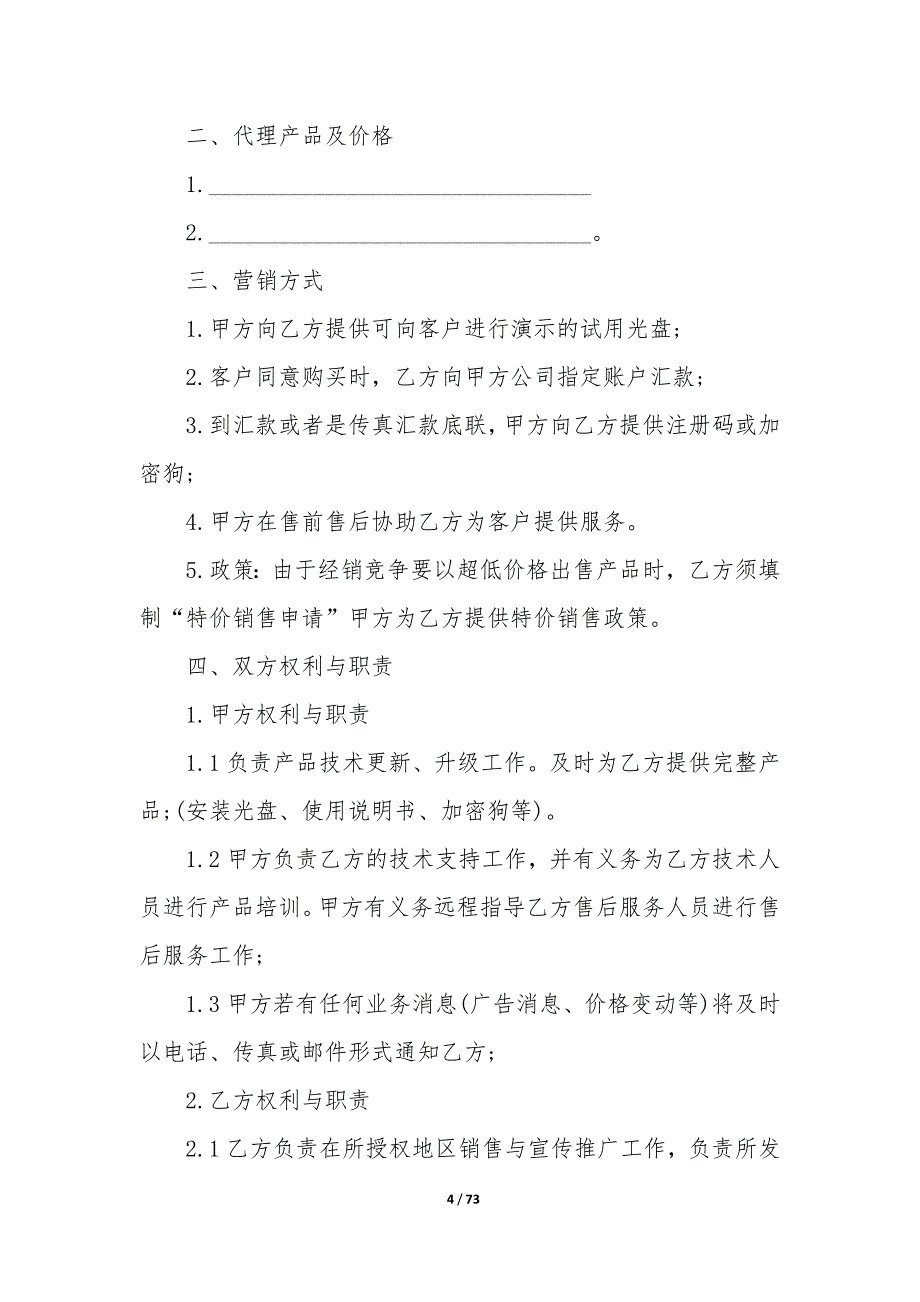 二、代理产品及价格
1.________________________________
2.________________________________。
三、营销方式
1.甲方向乙方提供可向客户进行演示的试用光盘;
2.客户同意购买时，乙方向甲方公司指定账户汇款;
3.到汇款或者是传真汇款底联，甲方向乙方提供注册码或加
密狗;
4.甲方在售前售后协助乙方为客户提供服务。
5.政策：由于经销竞争要以超低价格出售产品时，乙方须填
制“特价销售申请”甲方为乙方提供特价销售政策。
四、双方权利与职责
1.甲方权利与职责
1.1 负责产品技术更新、升级工作。及时为乙方提供完整产
品;(安装光盘、使用说明书、加密狗等)。
1.2 甲方负责乙方的技术支持工作，并有义务为乙方技术人
员进行产品培训。甲方有义务远程指导乙方售后服务人员进行售
后服务工作;
1.3 甲方若有任何业务消息(广告消息、价格变动等)将及时
以电话、传真或邮件形式通知乙方;
2.乙方权利与职责
2.1 乙方负责在所授权地区销售与宣传推广工作，负责所发
4 / 73